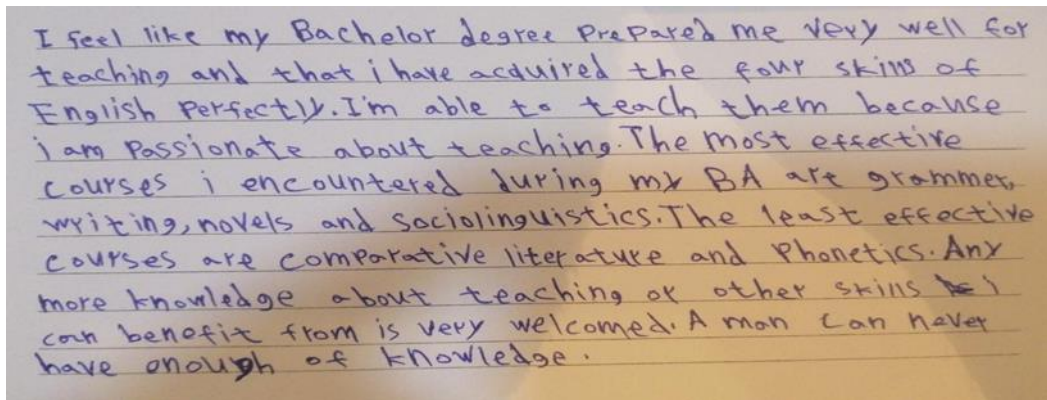 I feel like my Bachelor degree prepared me very well for
teaching and that i have acquired the four skills of
English perfectly. I'm able to teach them because
i am passionate about teaching. The most effective
courses i encountered during my BA are grammer,
writing, novels and Sociolinguistics. The least effective
courses are comparative literature and Phonetics. Any
more knowledge about teaching or other skills i
can benefit from is very welcomed. A man can never
have enough of knowledge.